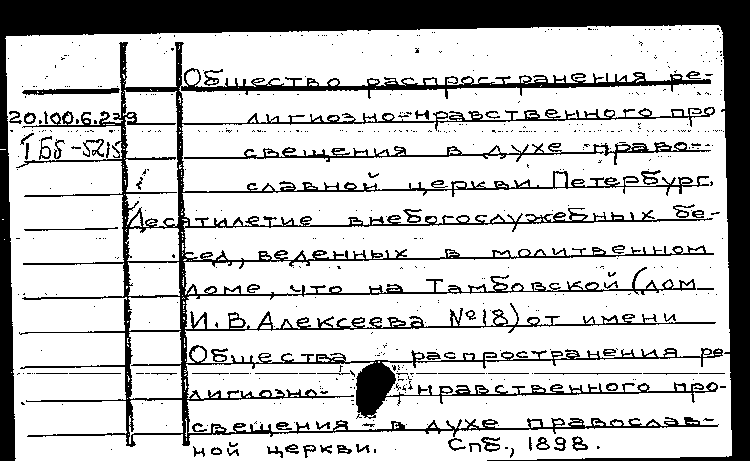 Общество распространения ре-
20.100.6.239 лигиозно-нравственного про-
I Бб-5215 свещения в духе право-
славной церкви. Петербург.
Десятилетие внебогослужебных бе-
сед, веденных в молитвенном
доме, что на Тамбовской (дом
И.В. Алексеева №18) от имени
Общества распространения ре-
лигиозно-нравственного про-
свещения в духе православ-
ной церкви. Спб., 1898.